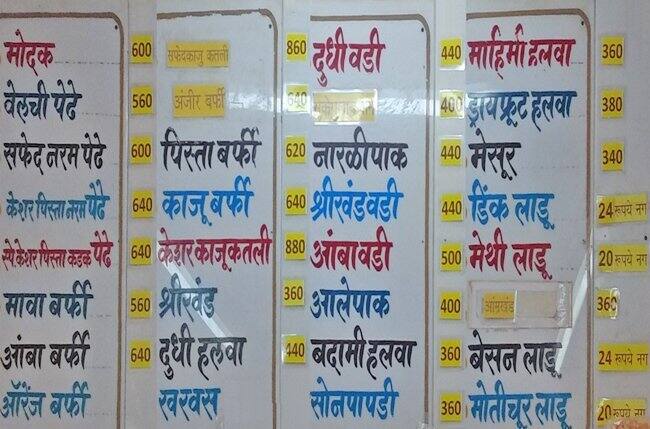 मोदक 600
वेलची पेढे 560
सफेद नरम पेढे 600
केशर पिस्ता नरम पेढे 640
स्पे केशर पिस्ता कडक पेढे 640
मावा बर्फी 560
आंबा बर्फी 640
ऑरेंज बर्फी
सफेदकाजु कतली 860
अंजीर बर्फी 640
पिस्ता बर्फी 620
काजू बर्फी 640
केशर काजूकतली 880
श्रीखंड 360
दुधी हलवा 440
खरवस
दुधी वडी 440
400
नारळीपाक 440
श्रीखंडवडी 440
आंबा वडी 500
आलेपाक 400
बदामी हलवा 360
सोनपापडी 360
माहिमी हलवा 360
ड्रायफ्रूट हलवा 380
मेसूर 340
डिंक लाडू 24 रूपये नग
मेथी लाडू 20 रूपये नग
आम्रखंड 360
बेसन लाडू 24 रूपये नग
मोतीचूर लाडू 20 रूपये नग